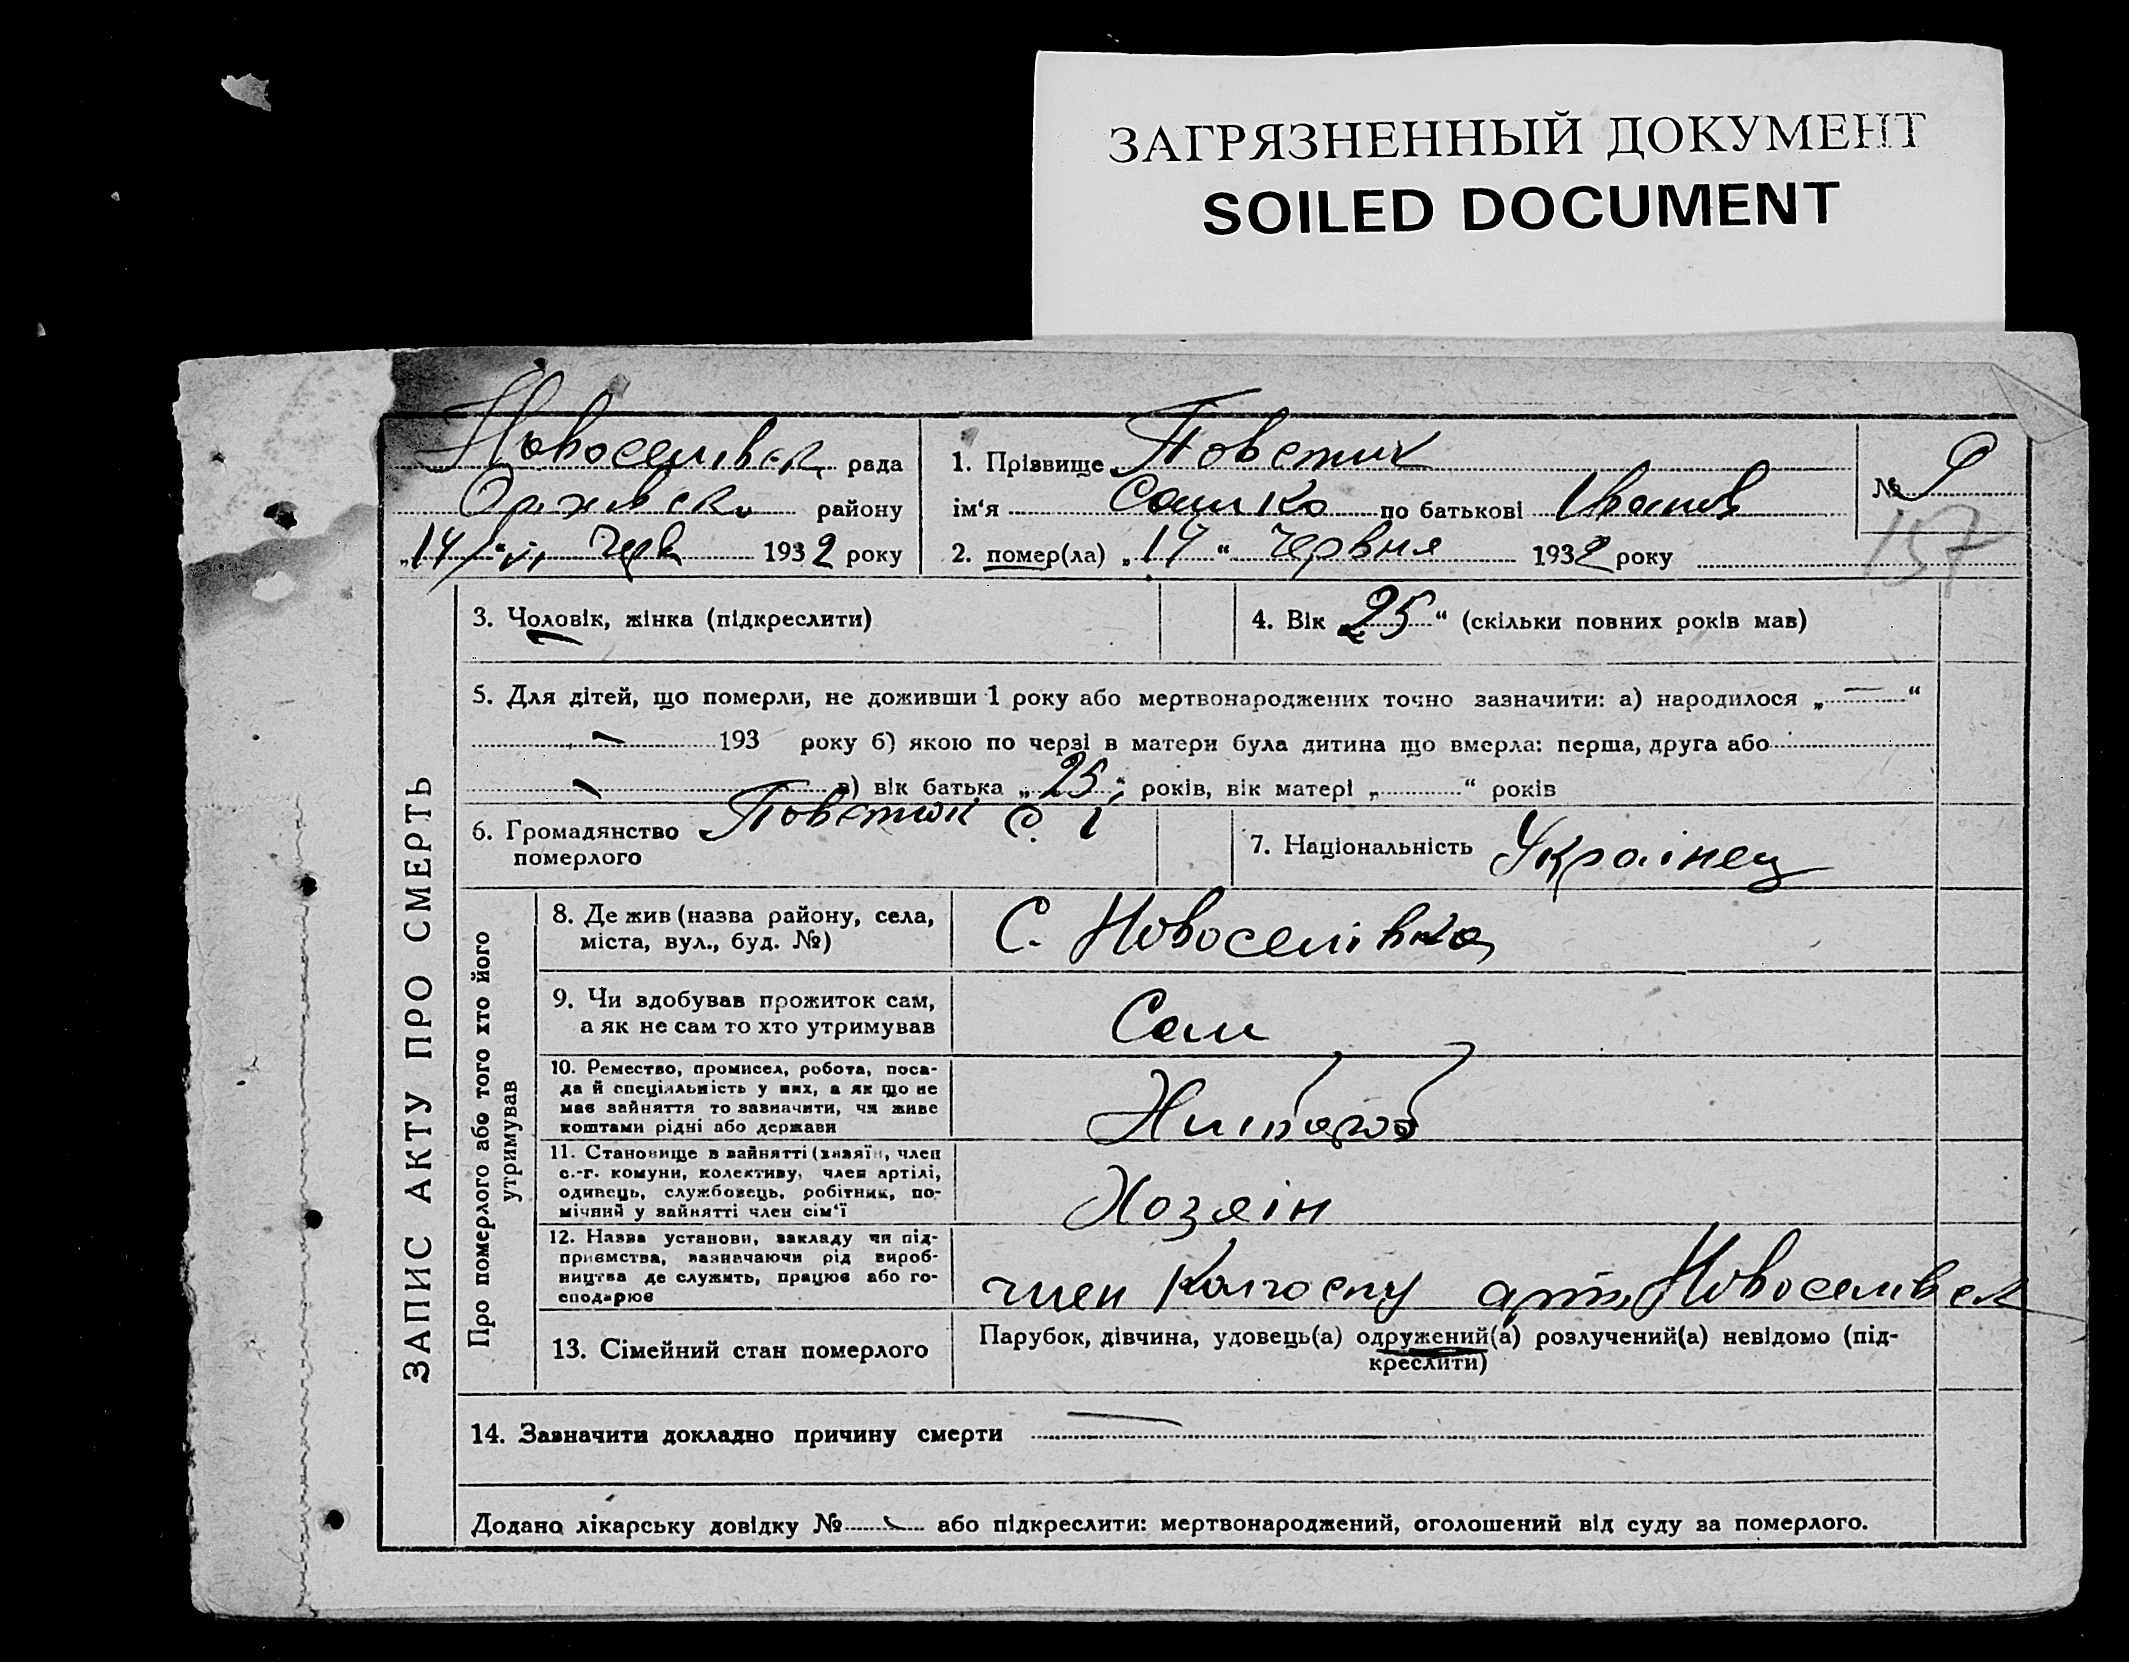 ЗАГРЯЗНЕННЫЙ ДОКУМЕНТ
SOILED DOCUMENT
Новоселівск рада
району
„14“ Черв 1932 року
1. Прізвище
ім‘я Сашко по батькові Іванов
2. помер(ла) „14“ Червня 1932 року
№ 9
157
3. Чоловік, жінка (підкреслити)
4. Вік „25“ (скільки повних років мав)
5. Для дітей, що померли, не доживши 1 року або мертвонароджених точно зазначити: а) народилося „—“
193 року б) якою по черзі в матери була дитина що вмерла: перша, друга або
в) вік батька „25“ років, вік матері „ “ років
6. Громадянство
померлого
7. Національність Украінец
ЗАПИС АКТУ ПРО СМЕРТЬ
Про померлого або того хто його
утримував
8. Де жив (назва району, села,
міста, вул., буд. №)
С. Новоселівка
9. Чи здобував прожиток сам,
а як не сам то хто утримував
Сам
10. Ремество, промисел, робота, поса-
да й спеціяльність у них, а як що не
має зайняття то зазначити, чи живе
коштами рідні або держави
Хлібороб
11. Становище в зайнятті (хазяїн, член
с.-г. комуни, колективу, член артілі,
одинець, службовець, робітник, по-
мічний у зайнятті член сім‘ї
Хозяін
12. Назва установи, закладу чи під-
приємства, зазначаючи рід вироб-
ництва де служить, працює або го-
сподарює
член Колгоспу арт. Новоселівск
13. Сімейний стан померлого
Парубок, дівчина, удовець(а) одружений(а) розлучений(а) невідомо (під-
креслити)
14. Зазначити докладно причину смерти —
Додано лікарську довідку № або підкреслити: мертвонароджений, оголошений від суду за померлого.